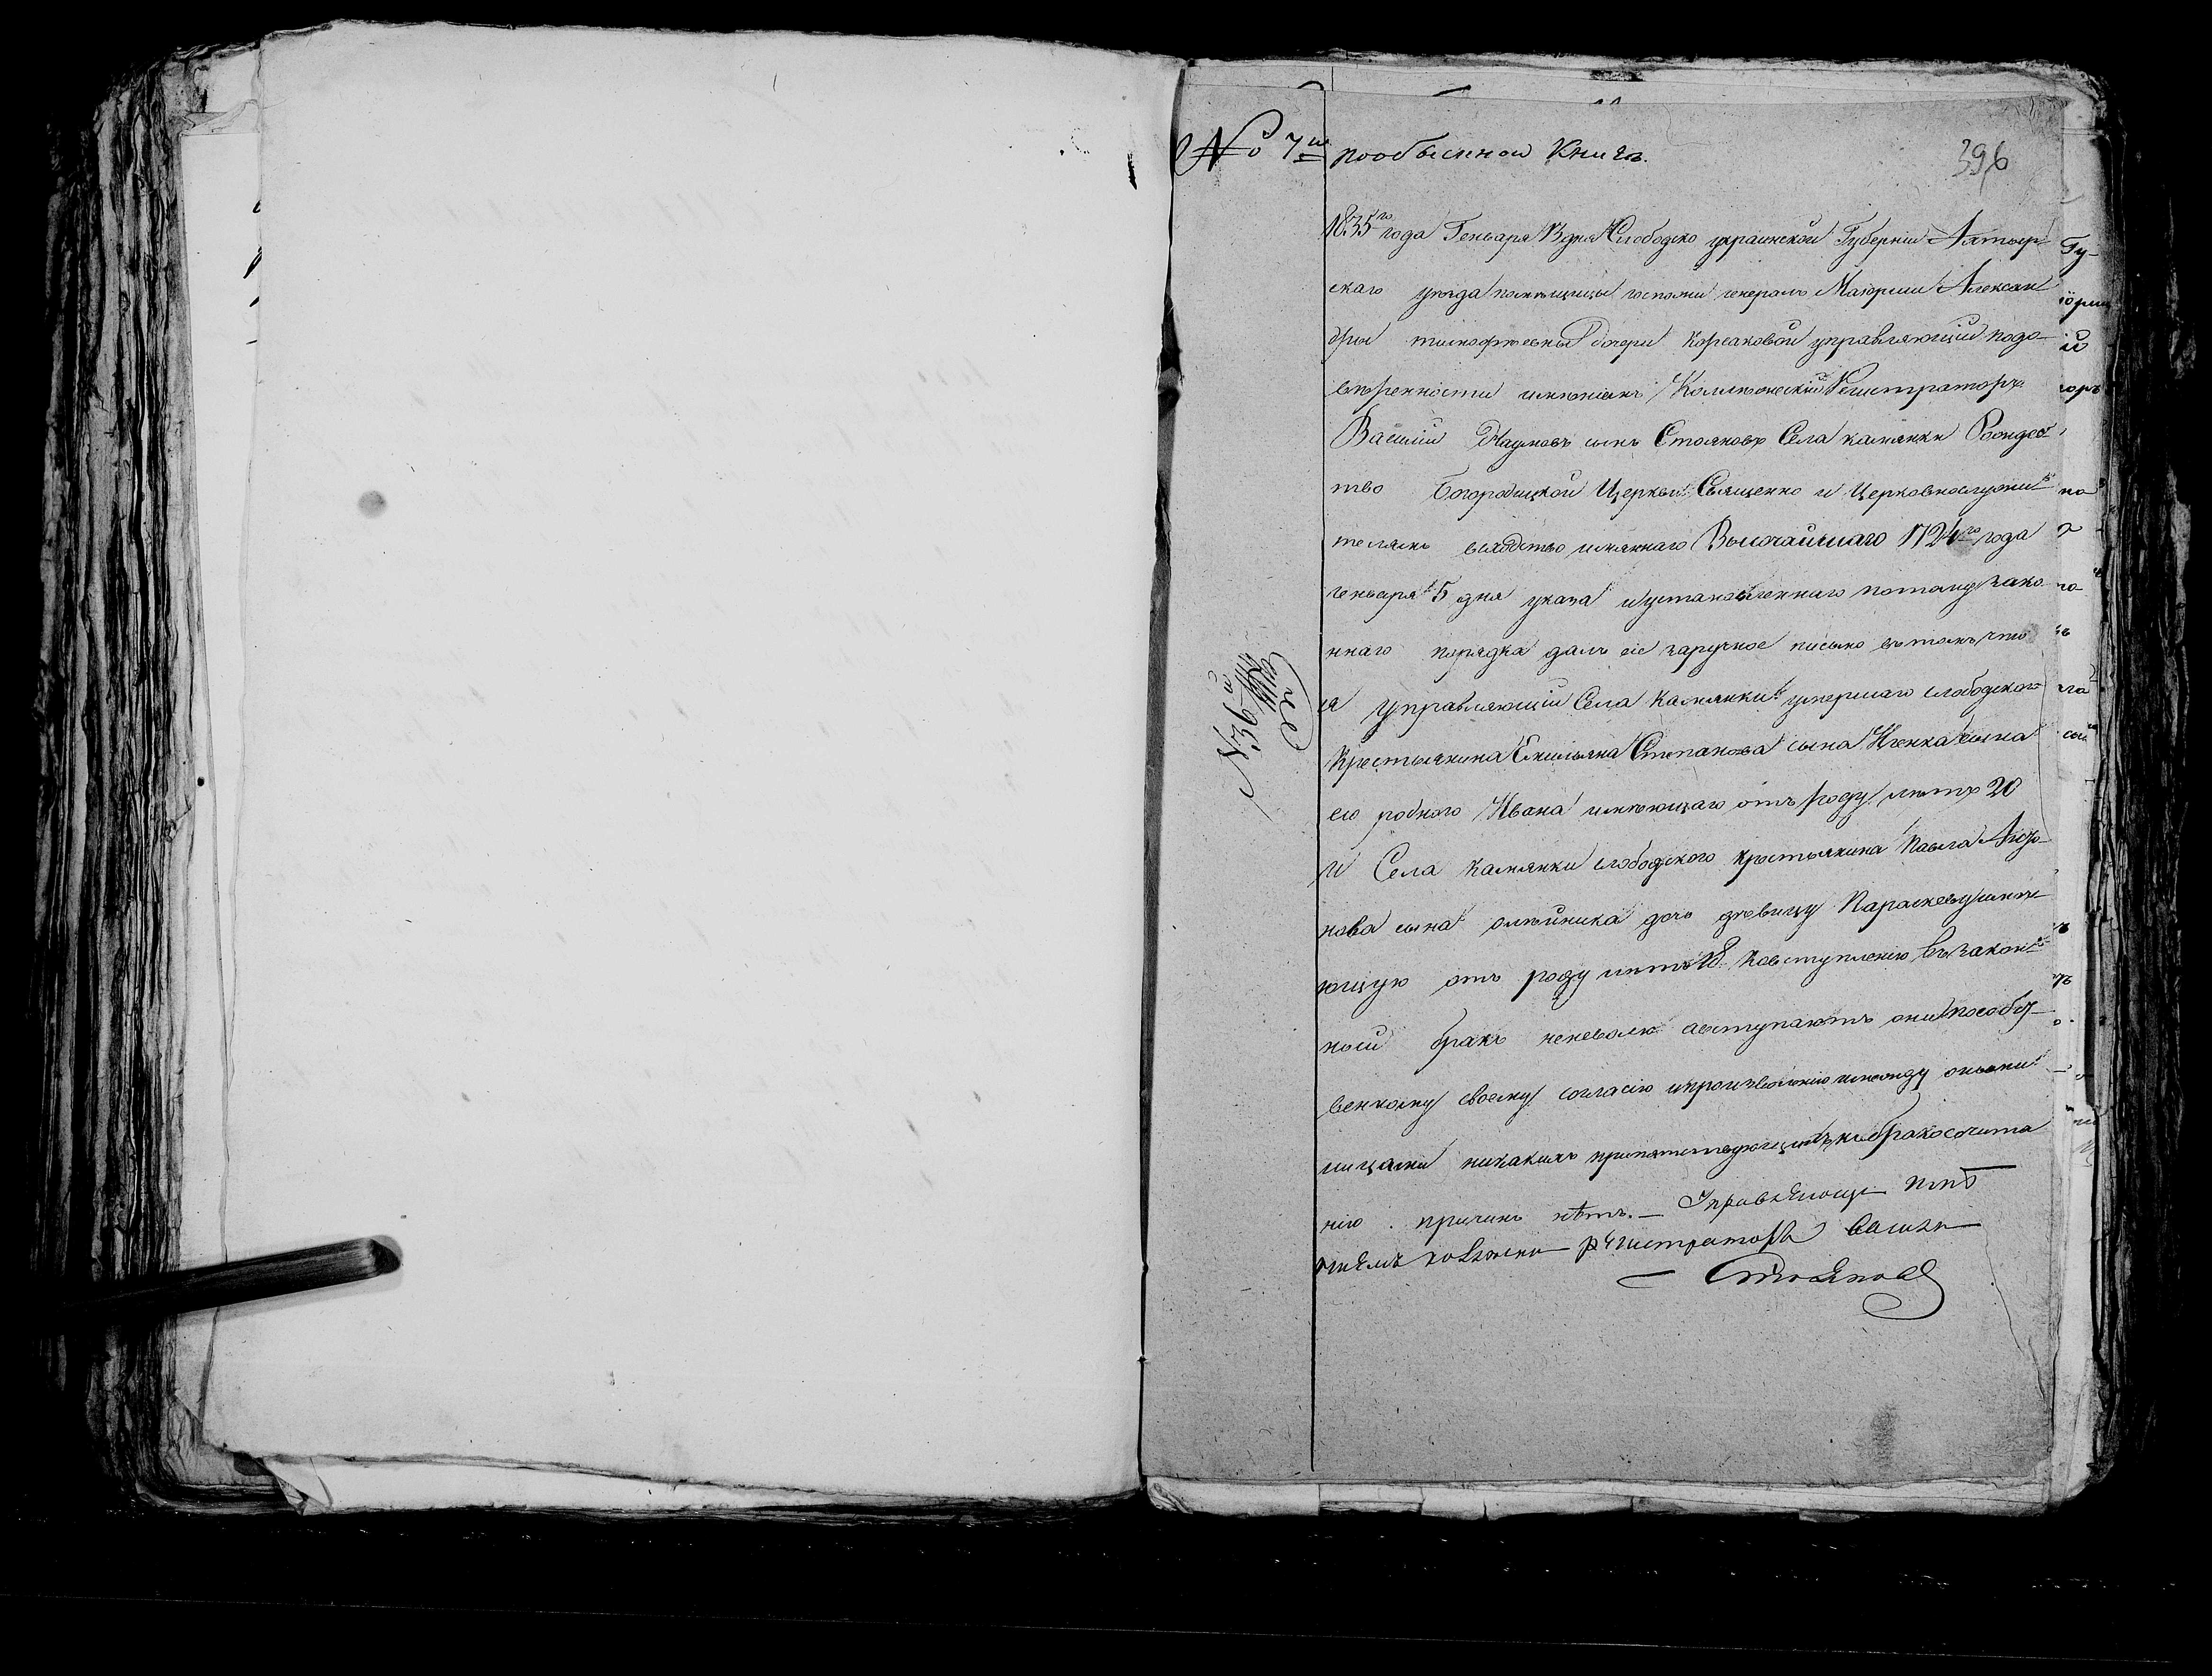 № 7й пообыскной Книгѣ.
396
1835го года Генваря 13 дня Слободско украинской Губерніи Ахтыр
скаго уезда помѣщицы госпожи генералъ Маіорши Алексан
дры тимофѣевны дочери Корсаковой управляющій подо
вѣренности имѣніемъ Коллежескій Регистраторъ
Василій Наумовъ сынъ Стояновъ Села камянки Рождес
тво Богородицкой Церкви Священно и Церковнослужи
телямъ вслѣдствіе имяннаго Высочайшаго 1724го года
генваря 5 дня указа иустановленнаго потому зако
ннаго порядка далъ сіе заручное письмо втомъ что
я управляющій Села Камянки умершаго слободскаго
Крестьянина Емильяна Степанова сына сына
его роднаго Ивана имѣющаго отъ роду лѣтъ 20
и Села Камянки слободского крестьянина Павла
нова сына олѣйника дочь дѣвицу Параскеву имѣ
ющую отъ роду лѣтъ 18 Ковступленію въ закон
ный бракъ неневолю авступаютъ они пособст
венному своему согласію ипроизволенію имежду оными
лицами никакихъ препятствующихъ кбракосочета
нію причинъ нѣтъ.— Управляющи имѣ
ниемъ колежски регистраторъ Васили
— Стоянов
№ 36й